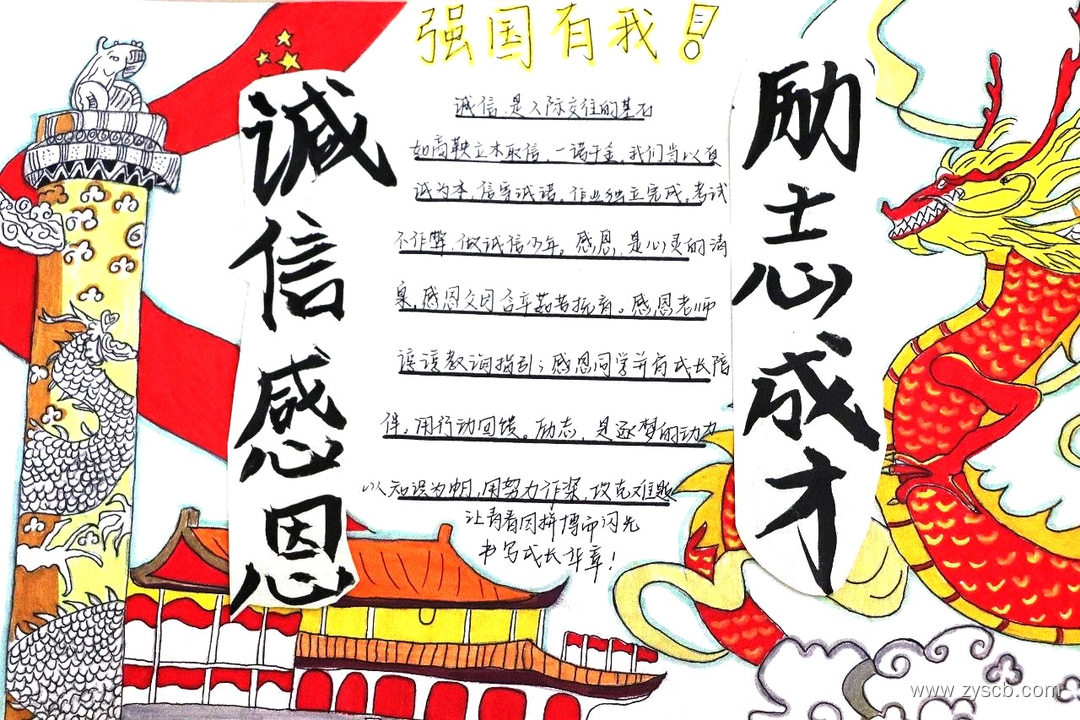 强国有我！
诚信感恩
励志成才
诚信，是人际交往的基石
如商鞅立木取信，一诺千金，我们当以真
诚为本，信守诚诺，作业独立完成，考试
不作弊，做诚信少年。感恩，是心灵的清
泉，感恩父母含辛茹苦抚育。感恩老师
谆谆教诲指引；感恩同学并肩成长陪
伴，用行动回馈。励志，是逐梦的动力
以知识为帆，用努力作桨，攻克难题
让青春因拼搏而闪光
书写成长华章！
www.zyscb.com